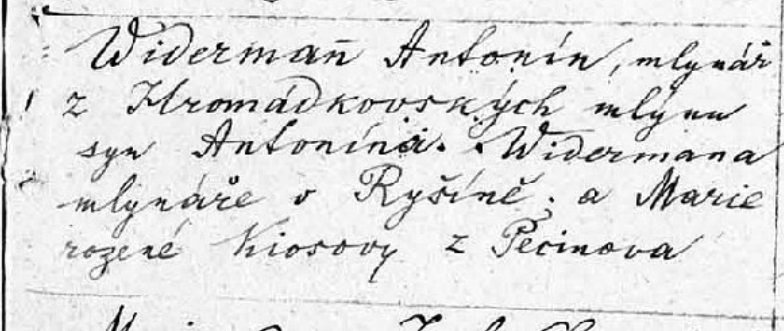 Widerman̄ Antonín, mlynář
z Hromádkovských mlýnu
syn Antonína Widermana
mlynáře v Ryšíně. a Marie
rozené Kiosovy z Pecinova